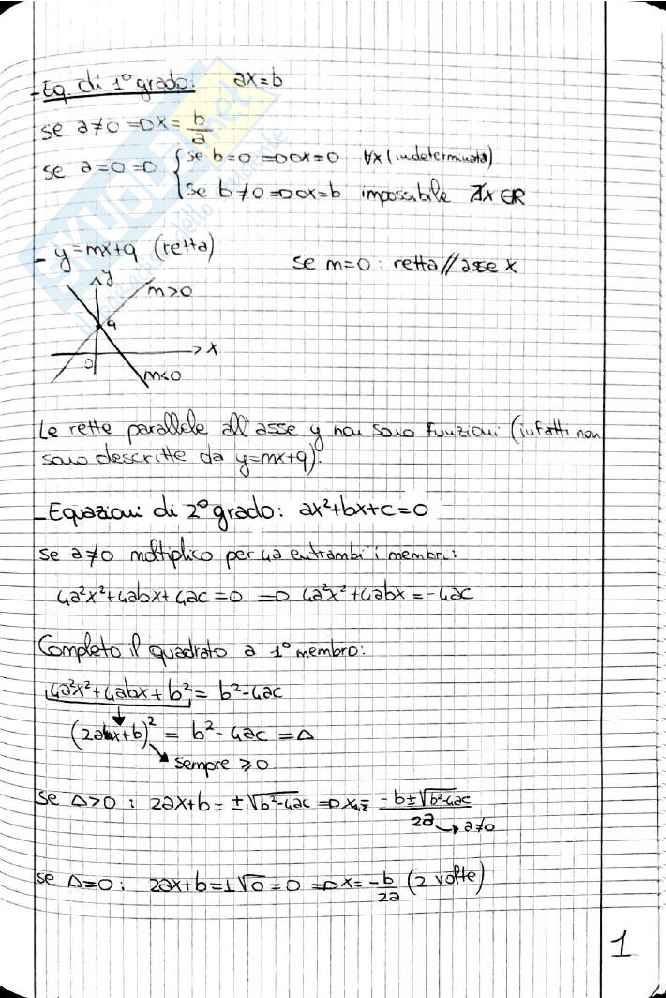 - Eq. di 1° grado: ax=b
se a≠0 ⇒ x = b/a
se a=0 ⇒ { se b=0 ⇒ 0x=0 ∀x (indeterminata)
se b≠0 ⇒ 0x=b impossibile ∄x∈R
- y=mx+q (retta) se m=0: retta // asse x
y
m>0
q
x
0
m<0
Le rette parallele all'asse y non sono funzioni (infatti non
sono descritte da y=mx+q).
- Equazioni di 2° grado: ax²+bx+c=0
se a≠0 moltiplico per 4a entrambi i membri:
4a²x²+4abx+4ac=0 ⇒ 4a²x²+4abx=-4ac
Completo il quadrato a 1° membro:
4a²x²+4abx+b² = b²-4ac
(2ax+b)² = b²-4ac = Δ
sempre ≥0
se Δ>0: 2ax+b = ±√b²-4ac ⇒ x = -b±√b²-4ac / 2a → a≠0
se Δ=0: 2ax+b=±√0=0 ⇒ x = -b/2a (2 volte)
1
SKUOLA.net